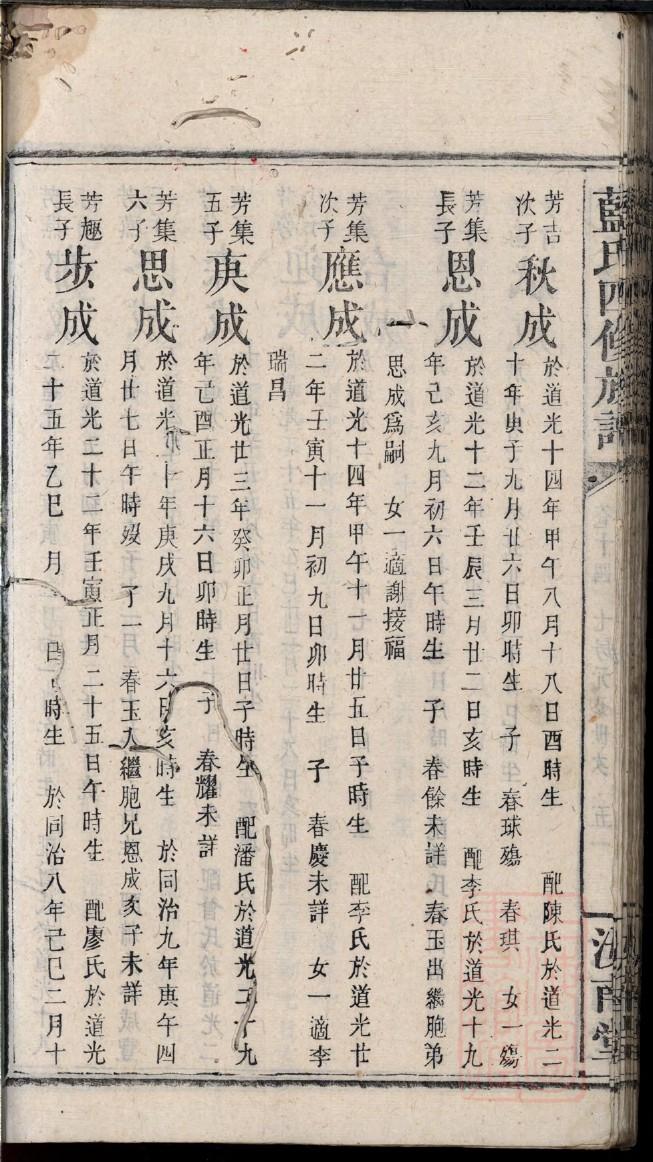 藍氏四修族譜
汝南堂
芳吉
次子
秋成
於道光十四年甲午八月十八日酉時生 配陳氏於道光二
十年庚子九月廿六日卯時生 子 春球殤 春琪 女一殤
芳集
長子
恩成
於道光十二年壬辰三月廿二日亥時生 配李氏於道光十九
年己亥九月初六日午時生 子 春餘未詳 春玉出繼胞弟
思成爲嗣 女一適謝接福
芳集
次子
應成
於道光十四年甲午十一月廿五日子時生 配李氏於道光廿
二年壬寅十一月初九日卯時生 子 春慶未詳 女一適李
瑞昌
芳集
五子
庚成
於道光廿三年癸卯正月廿日子時生 配潘氏於道光二十九
年己酉正月十六日卯時生 子 春耀未詳
芳集
六子
思成
於道光 十年庚戌九月十六日亥時生 於同治九年庚午四
月廿七日午時歿 子一 春玉入繼胞兄恩成亥子未詳
芳趣
長子
步成
於道光二十二年壬寅正月二十五日午時生 配廖氏於道光
二十五年乙巳 月 日 時生 於同治八年己巳二月十